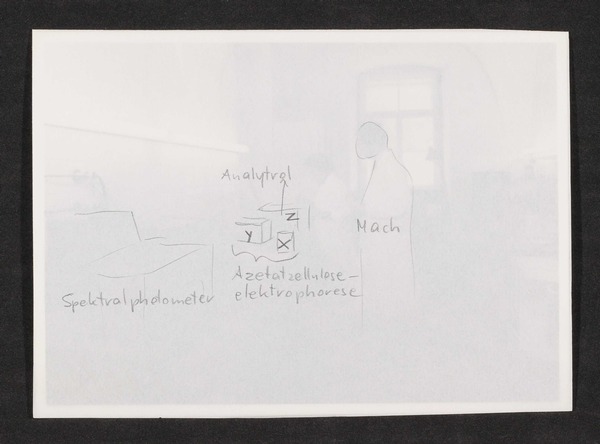 Analytrol
Z
Y
X
Mach
Azetatzellulose-
elektrophorese
Spektralphotometer